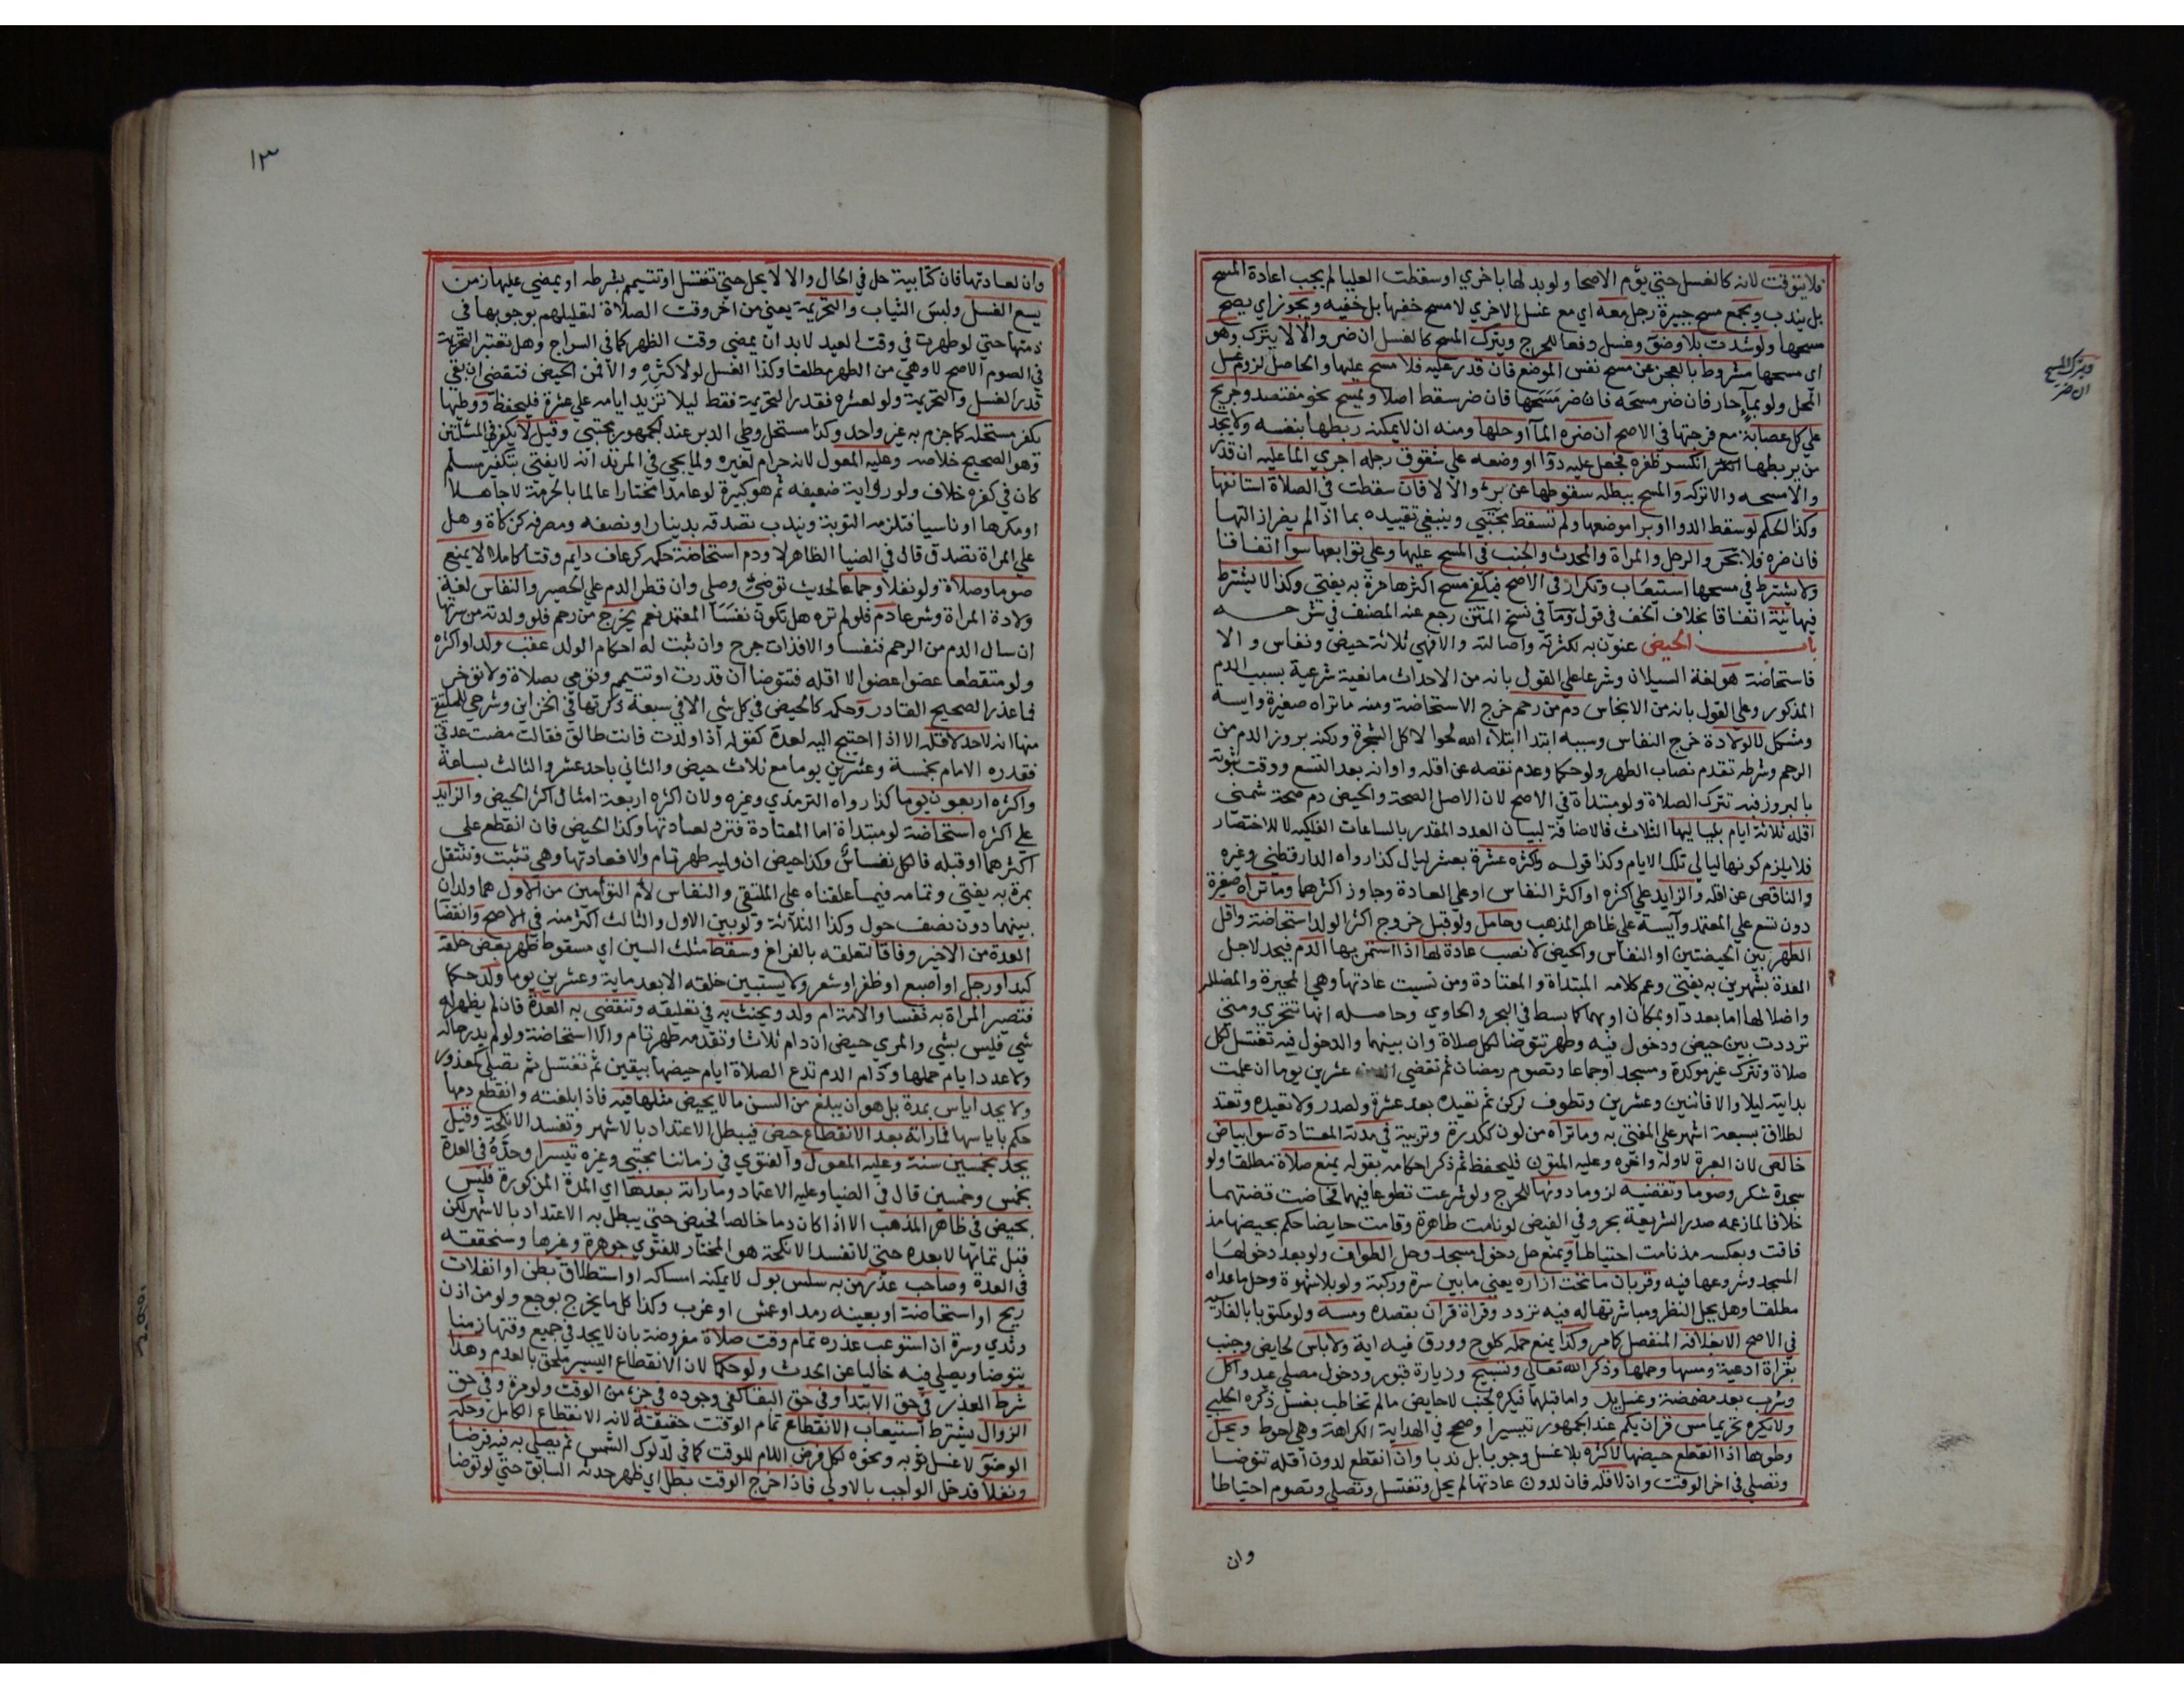 فلا يتوقت لانه كالغسل حتي يؤم الاصحا ولو بدلها باخري او سقطت العليا لم يجب اعادة المسح
بل يندب ويجمع مسح جبيرة رجل معه اي مع غسل الاخري لا مسح خفها بل خفيه ويجوز اي يصح
مسحها ولو شدت بلا وضؤ وغسل دفعا للحرج ويترك المسح كالغسل ان ضر والا لا يترك وهو
اي مسحها مشروط بالعجز عن مسح نفس الموضع فان قدر عليه فلا مسح عليها والحاصل لزوم غسل
المحل ولو بماء حار فان ضر مسحه فان ضر مسحها فان ضر سقط اصلا ويمسح نحو مفتصد وجريح
علي كل عصابة مع فرجتها في الاصح ان ضره الما او حلها ومنه ان لا يمكنه ربطها بنفسه ولا يجد
من يربطها انكسر ظفره فجعل عليه دوا او وضعه علي شقوق رجله اجري الما عليه ان قدر
والا مسحه والا تركه والمسح يبطله سقوطها عن برء والا لا فان سقطت في الصلاة استانفها
وكذا الحكم لو سقط الدوا او برا موضعها ولم تسقط مجتبي وينبغي تقييده بما اذا لم يضر ازالتها
فان ضره فلا بحر والرجل والمراة والمحدث والجنب في المسح عليها وعلي توابعها سوا اتفاقا
ولا يشترط في مسحها استيعاب وتكرار في الاصح فيكفي مسح اكثرها مرة به يفتي وكذا لا يشترط
فيها نية اتفاقا بخلاف الخف في قول وما في نسخ المتن رجع عنه المصنف في شرحه
باب الحيض عنون به لكثرته واصالته والا فهي ثلاثة حيض ونفاس والا
فاستحاضة هو لغة السيلان وشرعا علي القول بانه من الاحداث مانعية شرعية بسبب الدم
المذكور وعلي القول بانه من الانجاس دم من رحم خرج الاستحاضة ومنه ما تراه صغيرة وايسة
ومشكل لا لولادة خرج النفاس وسببه ابتدا ابتلاء الله لحوا لاكل الشجرة وركنه بروز الدم من
الرحم وشرطه تقدم نصاب الطهر ولو حكما وعدم نقصه عن اقله واوانه بعد التسع ووقت ثبوته
بالبروز فبه تترك الصلاة ولو مبتداة في الاصح لان الاصل الصحة والحيض دم صحة شمني
اقله ثلاثة ايام بلياليها الثلاث فالاضافة لبيان العدد المقدر بالساعات الفلكيه لا للاختصار
فلا يلزم كونها ليالي تلك الايام وكذا قوله واكثره عشرة بعشر ليال كذا رواه الدارقطني وغيره
والناقص عن اقله والزايد علي اكثره او اكثر النفاس او علي العادة وجاوز اكثرهما وما تراه صغيرة
دون تسع علي المعتمد وآيسة علي ظاهر المذهب وحامل ولو قبل خروج اكثر الولد استحاضة واقل
الطهر بين الحيضتين او النفاس والحيض لا نصب عادة لها اذا استمر بها الدم فيحد لاجل
العدة بشهرين به يفتي وعم كلامه المبتداة والمعتادة ومن نسيت عادتها وهي المحيرة والمضللة
واضلالها اما بعدد او بمكان او بهما كما بسط في البحر والحاوي وحاصله انها تتحري ومتي
ترددت بين حيض ودخول فيه وطهر تتوضا لكل صلاة وان بينهما والدخول فيه تغتسل لكل
صلاة وتترك غير موكدة ومسجد او جماعا وتصوم رمضان ثم تقضي عشرين يوما ان علمت
بدايته ليلا والا فاثنين وعشرين وتطوف لركن ثم تعيده بعد عشرة ولصدر ولا تعيده وتعتد
لطلاق بسبعة اشهر علي المفتي به وما تراه من لون ككدرة وتربية في مدته المعتادة سوا بياض
خالص لان العبرة لاوله واخره وعليه المتون فليحفظ ثم ذكر احكامه بقوله يمنع صلاة مطلقا ولو
سجدة شكر وصوما وتقضيه لزوما دونها للحرج ولو شرعت تطوعا فيهما فحاضت قضتهما
خلافا لما زعمه صدر الشريعة بحر وفي الفيض لو نامت طاهرة وقامت حايضا حكم بحيضها مذ
قامت وبعكسه مذ نامت احتياطا ويمنع حل دخول مسجد وحل الطواف ولو بعد دخولها
المسجد وشروعها فيه وقربان ما تحت ازاره يعني ما بين سرة وركبة ولو بلا شهوة وحل ما عداه
مطلقا وهل يحل النظر ومباشرتها له فيه تردد وقراة قران بقصده ومسه ولو مكتوبا بالفارسية
في الاصح الا بغلافه المنفصل كما مر وكذا يمنع حمله كلوح وورق فيه اية ولا باس لحايض وجنب
بقراة ادعية ومسها وحملها وذكر الله تعالي وتسبيح وزيارة قبور ودخول مصلي عيد واكل
وشرب بعد مضمضة وغسل يد واما قبلها فيكره لجنب لا حايض ما لم تخاطب بغسل ذكره الحلبي
ولا يكره تحريما مس قران بكم عند الجمهور تيسيرا وصحح في الهداية الكراهة وهي احوط ويحل
وطوها اذا انقطع حيضها لاكثره بلا غسل وجوبا بل ندبا وان انقطع لدون اقله تتوضا
وتصلي في اخر الوقت وان لاقله فان لدون عادتها لم يحل وتغتسل وتصلي وتصوم احتياطا
وان
ويترك المسح
ان ضر
١٣
وان لعادتها فان كتابية حل في الحال والا لا يحل حتي تغتسل او تتيمم بشرطه او يمضي عليها زمن
يسع الغسل ولبس الثياب والتحريمة يعني من اخر وقت الصلاة لتعليلهم بوجوبها في
ذمتها حتي لو طهرت في وقت العيد لا بد ان يمضي وقت الظهر كما في السراج وهل تعتبر التحريمة
في الصوم الاصح لا وهي من الطهر مطلقا وكذا الغسل لو لاكثره والا فمن الحيض فتقضي ان بقي
قدر الغسل والتحريمة ولو لعشرة فقدر التحريمة فقط ليلا تزيد ايامه علي عشرة فليحفظ ووطيها
يكفر مستحله كما جزم به غير واحد وكذا مستحل وطي الدبر عند الجمهور مجتبي وقيل لا يكفر في المسئلتين
وهو الصحيح خلاصه وعليه المعول لانه حرام لغيره ولما يجي في المرتد انه لا يفتي بتكفير مسلم
كان في كفره خلاف ولو رواية ضعيفه ثم هو كبيرة لو عامدا مختارا عالما بالحرمة لا جاهلا
او مكرها او ناسيا فتلزمه التوبة ويندب تصدقه بدينار او نصفه ومصرفه كزكاة وهل
علي المراة تصدق قال في الضيا الظاهر لا ودم استحاضة حكمه كرعاف دايم وقتا كاملا لا يمنع
صوما وصلاة ولو نفلا وجماعا لحديث توضئ وصلي وان قطر الدم علي الحصير والنفاس لغة
ولادة المراة وشرعا دم فلو لم تره هل تكون نفسا المعتمد نعم يخرج من رحم فلو ولدته من سرتها
ان سال الدم من الرحم فنفسا والا فذات جرح وان ثبت له احكام الولد عقب ولد او اكثره
ولو متقطعا عضوا عضوا لا اقله فتتوضا ان قدرت او تتيمم وتومي بصلاة ولا تؤخر
فما عذر الصحيح القادر وحكمه كالحيض في كل شي الا في سبعة ذكرتها في الخزاين وشرحي للملتقي
منها انه لا حد لاقله الا اذا احتيج اليه لعدة كقوله اذا ولدت فانت طالق فقالت مضت عدتي
فقدره الامام بخمسة وعشرين يوما مع ثلاث حيض والثاني باحد عشر والثالث بساعة
واكثره اربعون يوما كذا رواه الترمذي وغيره ولان اكثره اربعة امثال اكثر الحيض والزايد
علي اكثره استحاضة لو مبتداة اما المعتادة فترد لعادتها وكذا الحيض فان انقطع علي
اكثرهما او قبله فالكل نفاس وكذا حيض ان وليه طهر تام والا فعادتها وهي تثبت وتنتقل
بمرة به يفتي وتمامه فيما علقناه علي الملتقي والنفاس لام التؤامين من الاول هما ولدان
بينهما دون نصف حول وكذا الثلاثة ولو بين الاول والثالث اكثر منه في الاصح وانقضا
العدة من الاخير وفاقا لتعلقه بالفراغ وسقط مثلث السين اي مسقوط ظهر بعض خلقه
كيد او رجل او اصبع او ظفر او شعر ولا يستبين خلقه الا بعد ماية وعشرين يوما ولد حكما
فتصير المراة به نفسا والامة ام ولد ويحنث به في تعليقه وتنقضي به العدة فان لم يظهر له
شي فليس بشي والمري حيض ان دام ثلاثا وتقدمه طهر تام والا استحاضة ولو لم يدر حاله
ولا عدد ايام حملها ودام الدم تدع الصلاة ايام حيضها بيقين ثم تغتسل ثم تصلي كمعذور
ولا يحد اياس بمدة بل هو ان يبلغ من السن ما لا يحيض مثلها فيه فاذا بلغته وانقطع دمها
حكم باياسها فما راته بعد الانقطاع حيض فيبطل الاعتداد بالاشهر وتفسد الانكحة وقيل
يحد بخمسين سنة وعليه المعول والفتوي في زماننا مجتبي وغيره تيسيرا وحده في العدة
بخمس وخمسين قال في الضيا وعليه الاعتماد وما راته بعدها اي المدة المذكورة فليس
بحيض في ظاهر المذهب الا اذا كان دما خالصا فحيض حتي يبطل به الاعتداد بالاشهر لكن
قبل تمامها لا بعده حتي لا تفسد الانكحة هو المختار للفتوي جوهرة وغيرها وسنحققه
في العدة وصاحب عذر من به سلس بول لا يمكنه امساكه او استطلاق بطن او انفلات
ريح او استحاضة او بعينه رمد او عمش او غرب وكذا كل ما يخرج بوجع ولو من اذن
وثدي وسرة ان استوعب عذره تمام وقت صلاة مفروضة بان لا يجد في جميع وقتها زمنا
يتوضا ويصلي فيه خاليا عن الحدث ولو حكما لان الانقطاع اليسير ملحق بالعدم وهذا
شرط العذر في حق الابتدا وفي حق البقا كفي وجوده في جزء من الوقت ولو مرة وفي حق
الزوال يشترط استيعاب الانقطاع تمام الوقت حقيقة لانه الانقطاع الكامل وحكمه
الوضؤ لا غسل ثوبه ونحوه لكل فرض اللام للوقت كما في لدلوك الشمس ثم يصلي به فيه فرضا
ونفلا فدخل الواجب بالاولي فاذا خرج الوقت بطل اي ظهر حدثه السابق حتي لو توضا